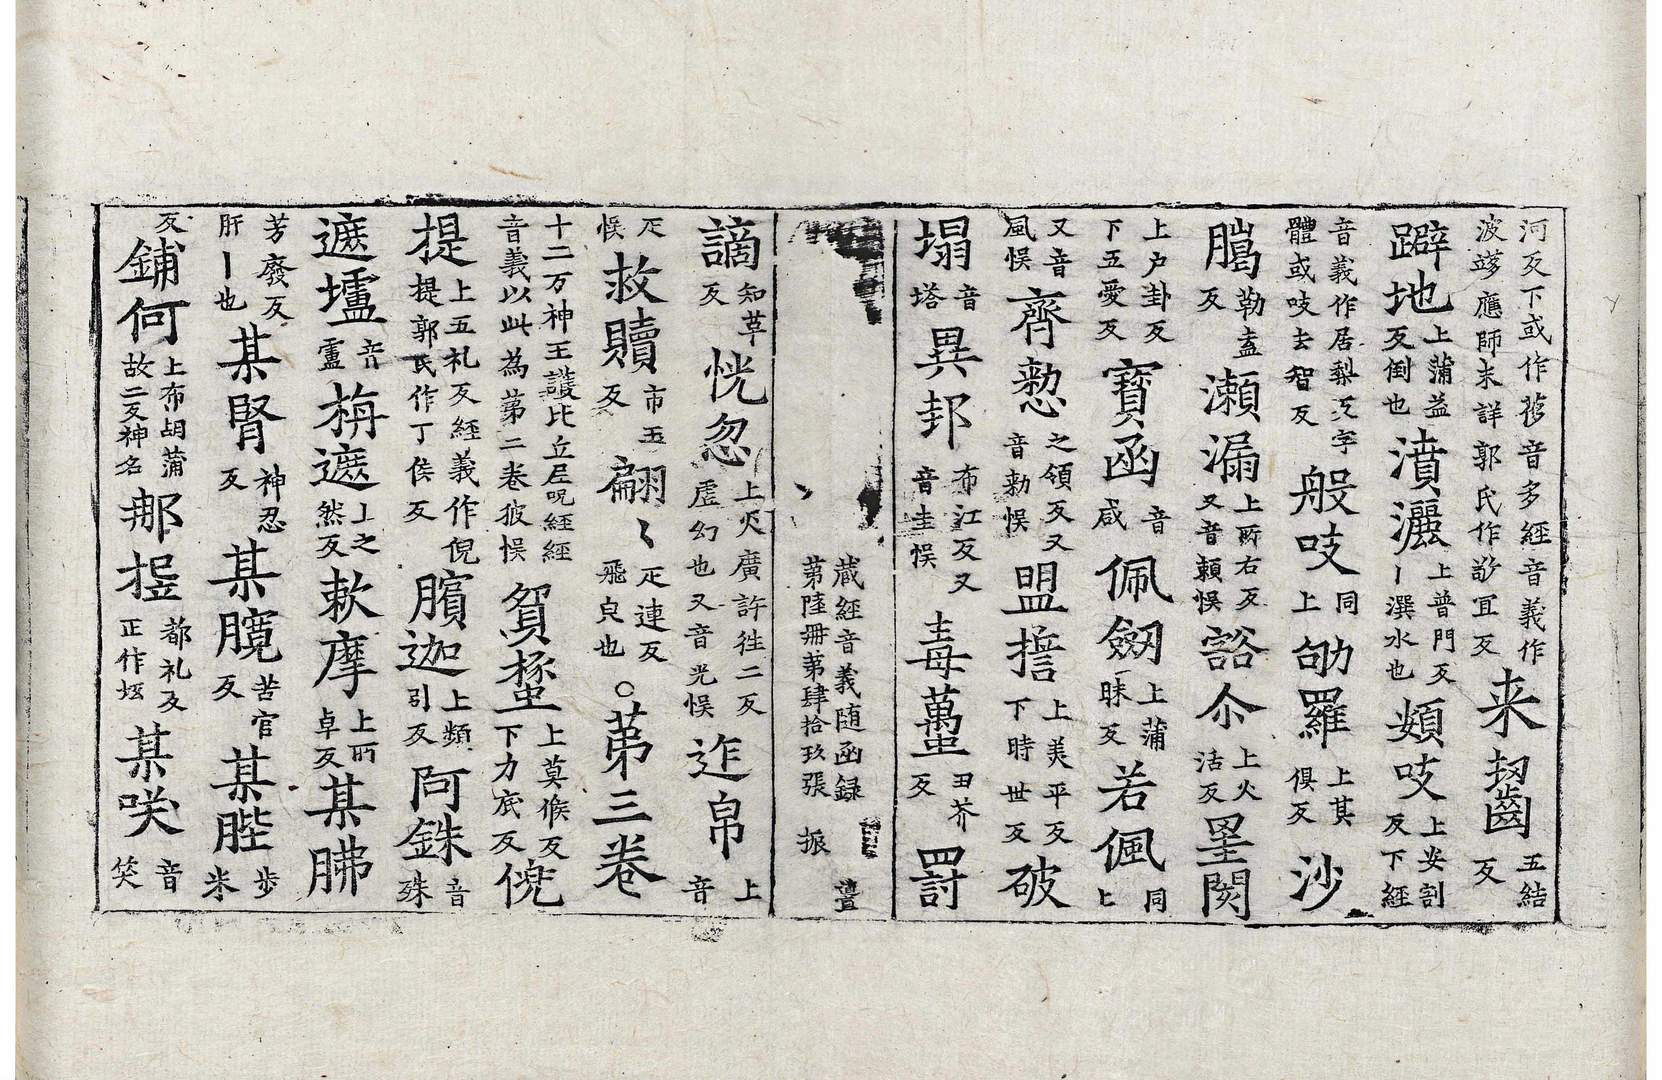 河反下或作𦿆音多經音義作波𨂂應師未詳郭氏作䟢冝反来齧五結反
躃地上蒲益反倒也濆灑上普門反丨潠水也頞吱上安割反下經
音義作居梨反字體或吱去智反般吱同上劬羅上其俱反沙
臈勒盍反瀬漏上所右反又音頼悮豁尒上火活反墨闋
上户卦反下五愛反寶函音咸佩劔上蒲昧反若佩同上
又音風悮齊整之領反又音勑悮盟誓上美平反下時世反破
塌音塔異邦布江反又音圭悮毒蠆丑芥反罸
藏經音義随函録第陸冊第肆拾玖張 振
謫知革反恍忽上火廣許往二反虚幻也又音光悮迮帛上音
疋悮救贖市玉反翩〻疋連反飛皃也○苐三卷
十二万神王護比丘尼呪經經音義以此為苐二卷彼悮貿𧎴上莫候反下力底反倪
提上五礼反經義作倪提郭氏作丁侯反臏迦上頻引反阿銖音殊
遮壚音盧栴遮上之然反敕摩上所卓反某胇
芳廢反肝丨也某腎神忍反某臗苦官反某䏶步米
反鋪何上布胡蒲故二反神名𨙻𡋷都礼反正作坻某咲音笑